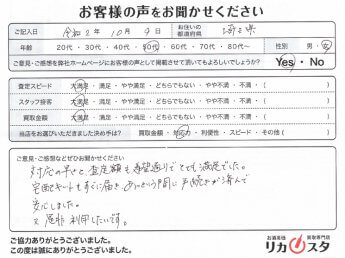 お客様の声をお聞かせください
ご記入日 令和2年10月9日 お住いの都道府県 埼玉県
年齢 20代・30代・40代・50代・60代・70代・80代〜 性別 男・女
ご意見・ご感想を弊社ホームページにお客様の声として掲載させて頂いてもよろしいでしょうか? Yes・No
査定スピード 大満足・満足・やや満足・どちらでもない・やや不満・不満・( )
スタッフ接客 大満足・満足・やや満足・どちらでもない・やや不満・不満・( )
買取金額 大満足・満足・やや満足・どちらでもない・やや不満・不満・( )
当店をお選びいただきました決め手は? 買取金額・対応力・利便性・スピード・その他( )
ご意見・ご感想などぜひお聞かせください
対応の早さと査定額も希望通りでとても満足でした。
宅配キットもすぐに届き、あっという間に手続きが済んで
安心しました。
又是非利用したいです。
ご協力ありがとうございました。
この度は誠にありがとうございました。
お酒高価買取専門店
リカスタ